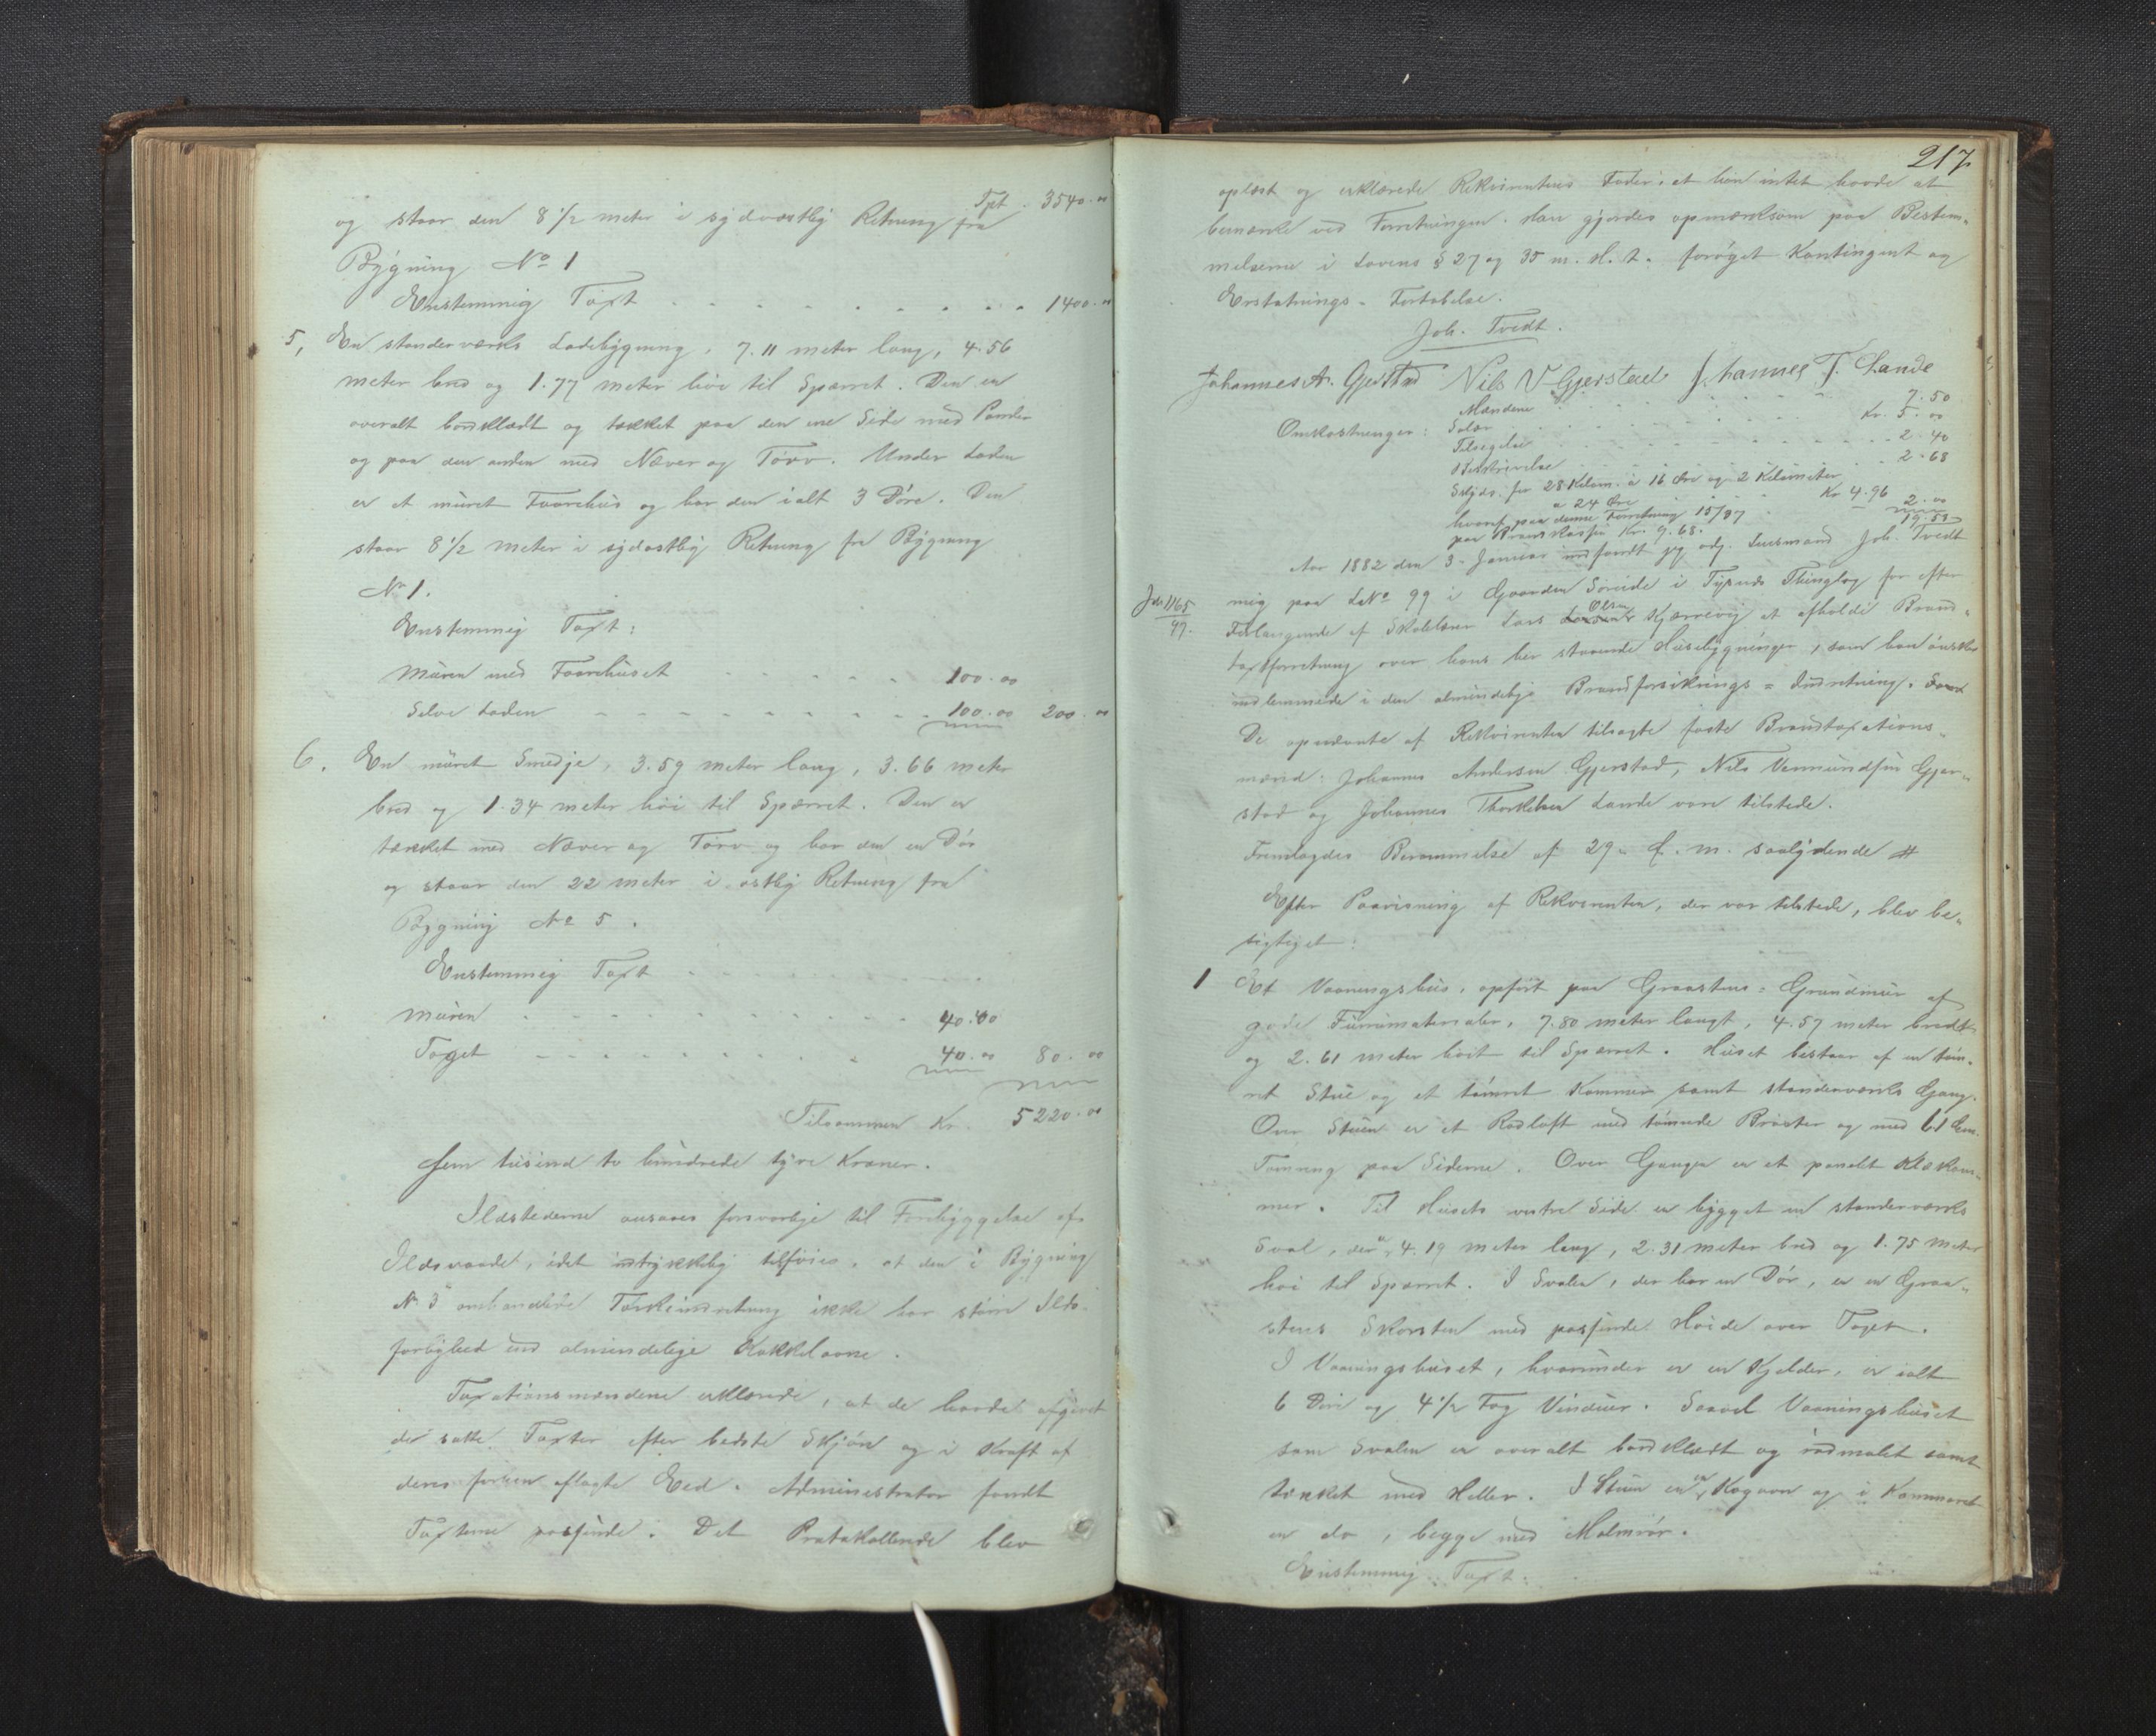 Tpt. 3540.00
og staar den 8 1/2 meter i sydvæstlig Retning fra
Bygning No 1
Enstemmig Taxt . . . . . . . . . 1400.00
5, En standerværks Ladebygning, 7.11 meter lang, 4.56
meter bred og 1.77 meter høi til Spærret. Den er
overalt bordklædt og tækket paa den ene Side med Pander
og paa den anden med Næver og Törv. Under Laden
er et müret Faarehüs og har den ialt 3 Döre. Den
staar 8 1/2 meter i sydostlig Retning fra Bygning
No 1.
Enstemmig Taxt:
Müren med Faarehüset . . . . . . 100.00
Selve Laden - - - - - - - - - - 100.00 200.00
6. En müret Smedje, 3.59 meter lang, 3.66 meter
bred og 1.34 meter höi til Spærret. Den er
tækket med Næver og Törv og har den en Dör
og staar den 22 meter i ostlig Retning fra
Bygning No 5.
Enstemmig Taxt . . . . . . . .
Müren . . . . . . . . . . 40.00
Taget - - - - - - - - - 40.00 80.00
Tilsammen Kr. 5220.00
Fem tüsind to hündrede tyve Kroner.
Ildstederne ansaaes forsvarlige til Forebyggelse af
Ildsvaade, idet üdtrykkelig tilföies, at den i Bygning
No 3 omhandlede Törkeindretning ikke har större Ilds-
farlighed end almindelige Kakkelovne.
Taxationsmændene erklærede, at de havde afgivet
de satte Taxter efter bedste Skjön og i Kraft af
deres forhen aflagte Eed. Administrator fandt
Taxterne passende. Det Protokollerede blev
217
oplæst og erklærede Rekvirentens Fader, at han intet havde at
bemærke ved Forretningen. Han gjordes opmærksom paa Bestem-
melserne i Lovens § 27 og 35 m. H. t. forøget Kontingent og
Erstatnings-Fortabelse.
Joh. Tvedt.
Johannes A. Gjerstad Nils V Gjerstad Johannes T. Lande
Omkostninger: Mændene . . . . . . 7.50
Salær . . . . . . Kr. 5.00
Tilsigelse . . . . . . 2.40
Beskrivelse . . . . . . 2.68
Skyds for 28 Kilom. a 16 Öre og 2 Kilometer
a 24 Öre . . Kr 4.96
hvoraf paa denne Forretning 15/37 . . 2.00
paa Brandkassen Kr. 9.68. 19.58
Aar 1882 den 3. Januar indfandt jeg edj. Lensmand Joh. Tvedt
Jds 1165/97. mig paa LNo 99 i Gaarden Söreide i Tysnes Thinglag for efter
Forlangende af Skolelærer Lars Larsen Olsen Kjærrevig at afholde Brand-
taxtforretning over hans her staaende Hüsebygninger, som han önsker
indlemmede i den almindelige Brandforsikrings-Indretning.
De opnævnte af Rekvirenten tilsagte faste Brandtaxations-
mænd: Johannes Andersen Gjerstad, Nils Vermündsen Gjer-
stad og Johannes Thorkelsen Lande vare tilstede.
Fremlagdes Berammelse af 29. f. m. saalydende #
Efter Paavisning af Rekvirenten, der var tilstede, blev be-
sigtiget:
1 Et Vaaningshüs, opfört paa Graastens-Grundmür af
gode Fürümaterialer, 7.80 meter langt, 4.57 meter bredt
og 2.61 meter höit til Spærret. Hüset bestaar af en töm-
ret Stüe og et tömret Kammer samt standerværks Gang.
Over Stüen er et Rodloft med tömrede Bröster og med 61 Cm.
Tömring paa Siderne. Over Gangen er et panelet Klækam-
mer. Til Hüsets vestre Side er bygget en standerværks
Sval, der er 4.19 meter lang, 2.31 meter bred og 1.75 meter
höi til Spærret. I Svalen, der har en Dör, er en Graa-
stens Skorsten med passende Höide over Taget.
I Vaaningshüset, hvoründer er en Kjelder, er ialt
6 Döre og 4 1/2 Fag Vindüer. Saavel Vaaningshüset
som Svalen er overalt bordklædt og rödmalet samt
tækket med Heller. I Stüen er en Kogovn og i Kammeret
en do, begge med Malmrör.
Enstemmig Taxt: